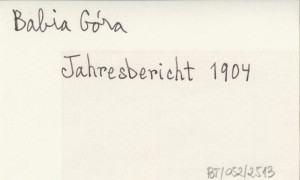 Babia Góra
Jahresbericht 1904
BT/052/2513